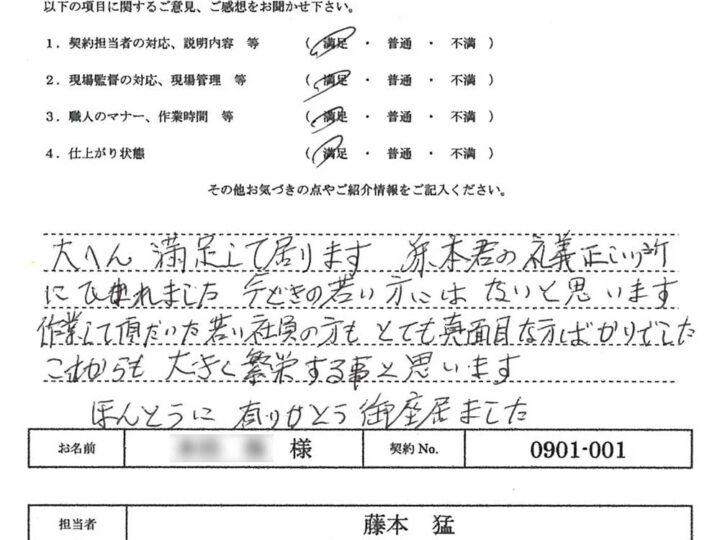 以下の項目に関するご意見、ご感想をお聞かせ下さい。
1．契約担当者の対応、説明内容 等 （ 満足 ・ 普通 ・ 不満 ）
2．現場監督の対応、現場管理 等 （ 満足 ・ 普通 ・ 不満 ）
3．職人のマナー、作業時間 等 （ 満足 ・ 普通 ・ 不満 ）
4．仕上がり状態 （ 満足 ・ 普通 ・ 不満 ）
その他お気づきの点やご紹介情報をご記入ください。
大へん 満足して居ります 藤本君の礼義正しい所
にひかれました 今どきの若い方にはないと思います
作業して頂だいた若い社員の方も とても真面目な方ばかりでした
これからも 大きく繁栄する事と思います
ほんとうに 有りがとう御座居ました
お名前 様 契約 No. 0901-001
担当者 藤本 猛